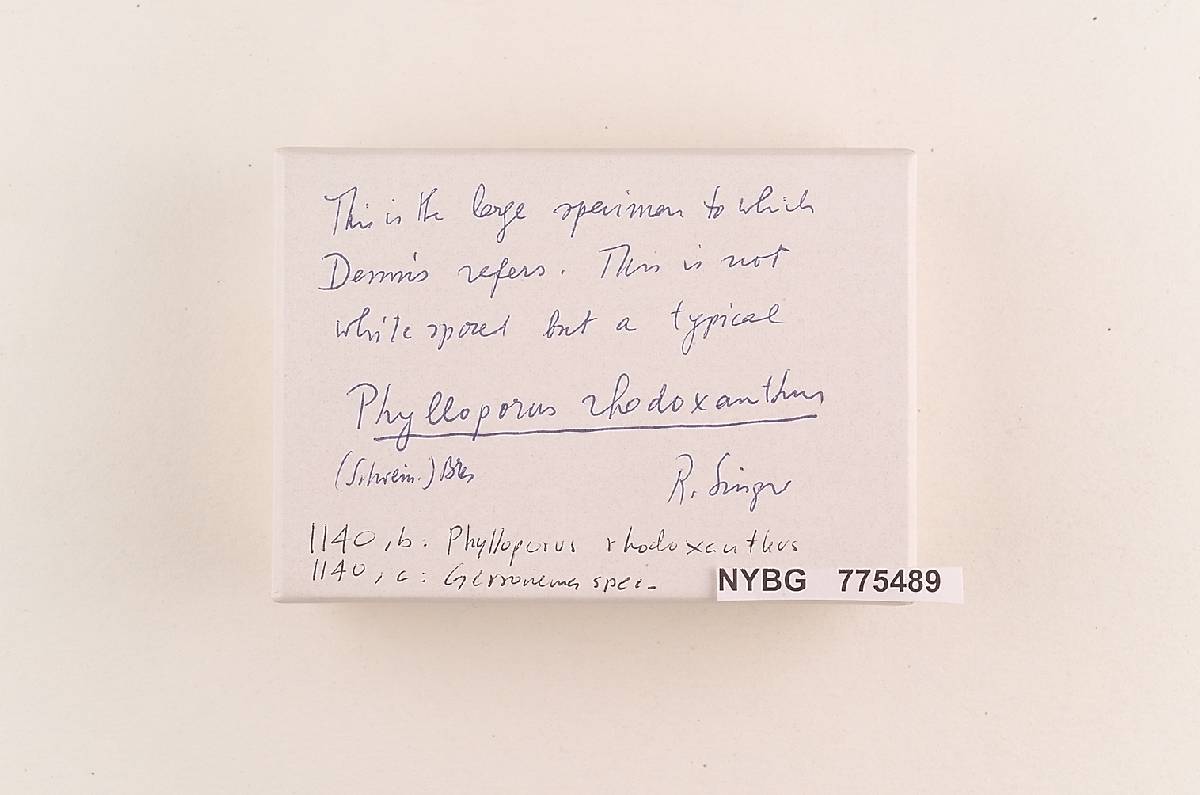 This is the large specimen to which
Dennis refers. This is not
white spored but a typical
Phylloporus rhodoxanthus
(Schwein.) Bres
R. Singer
1140, b. Phylloporus rhodoxanthus
1140, a: Gerronema spec.
NYBG 775489